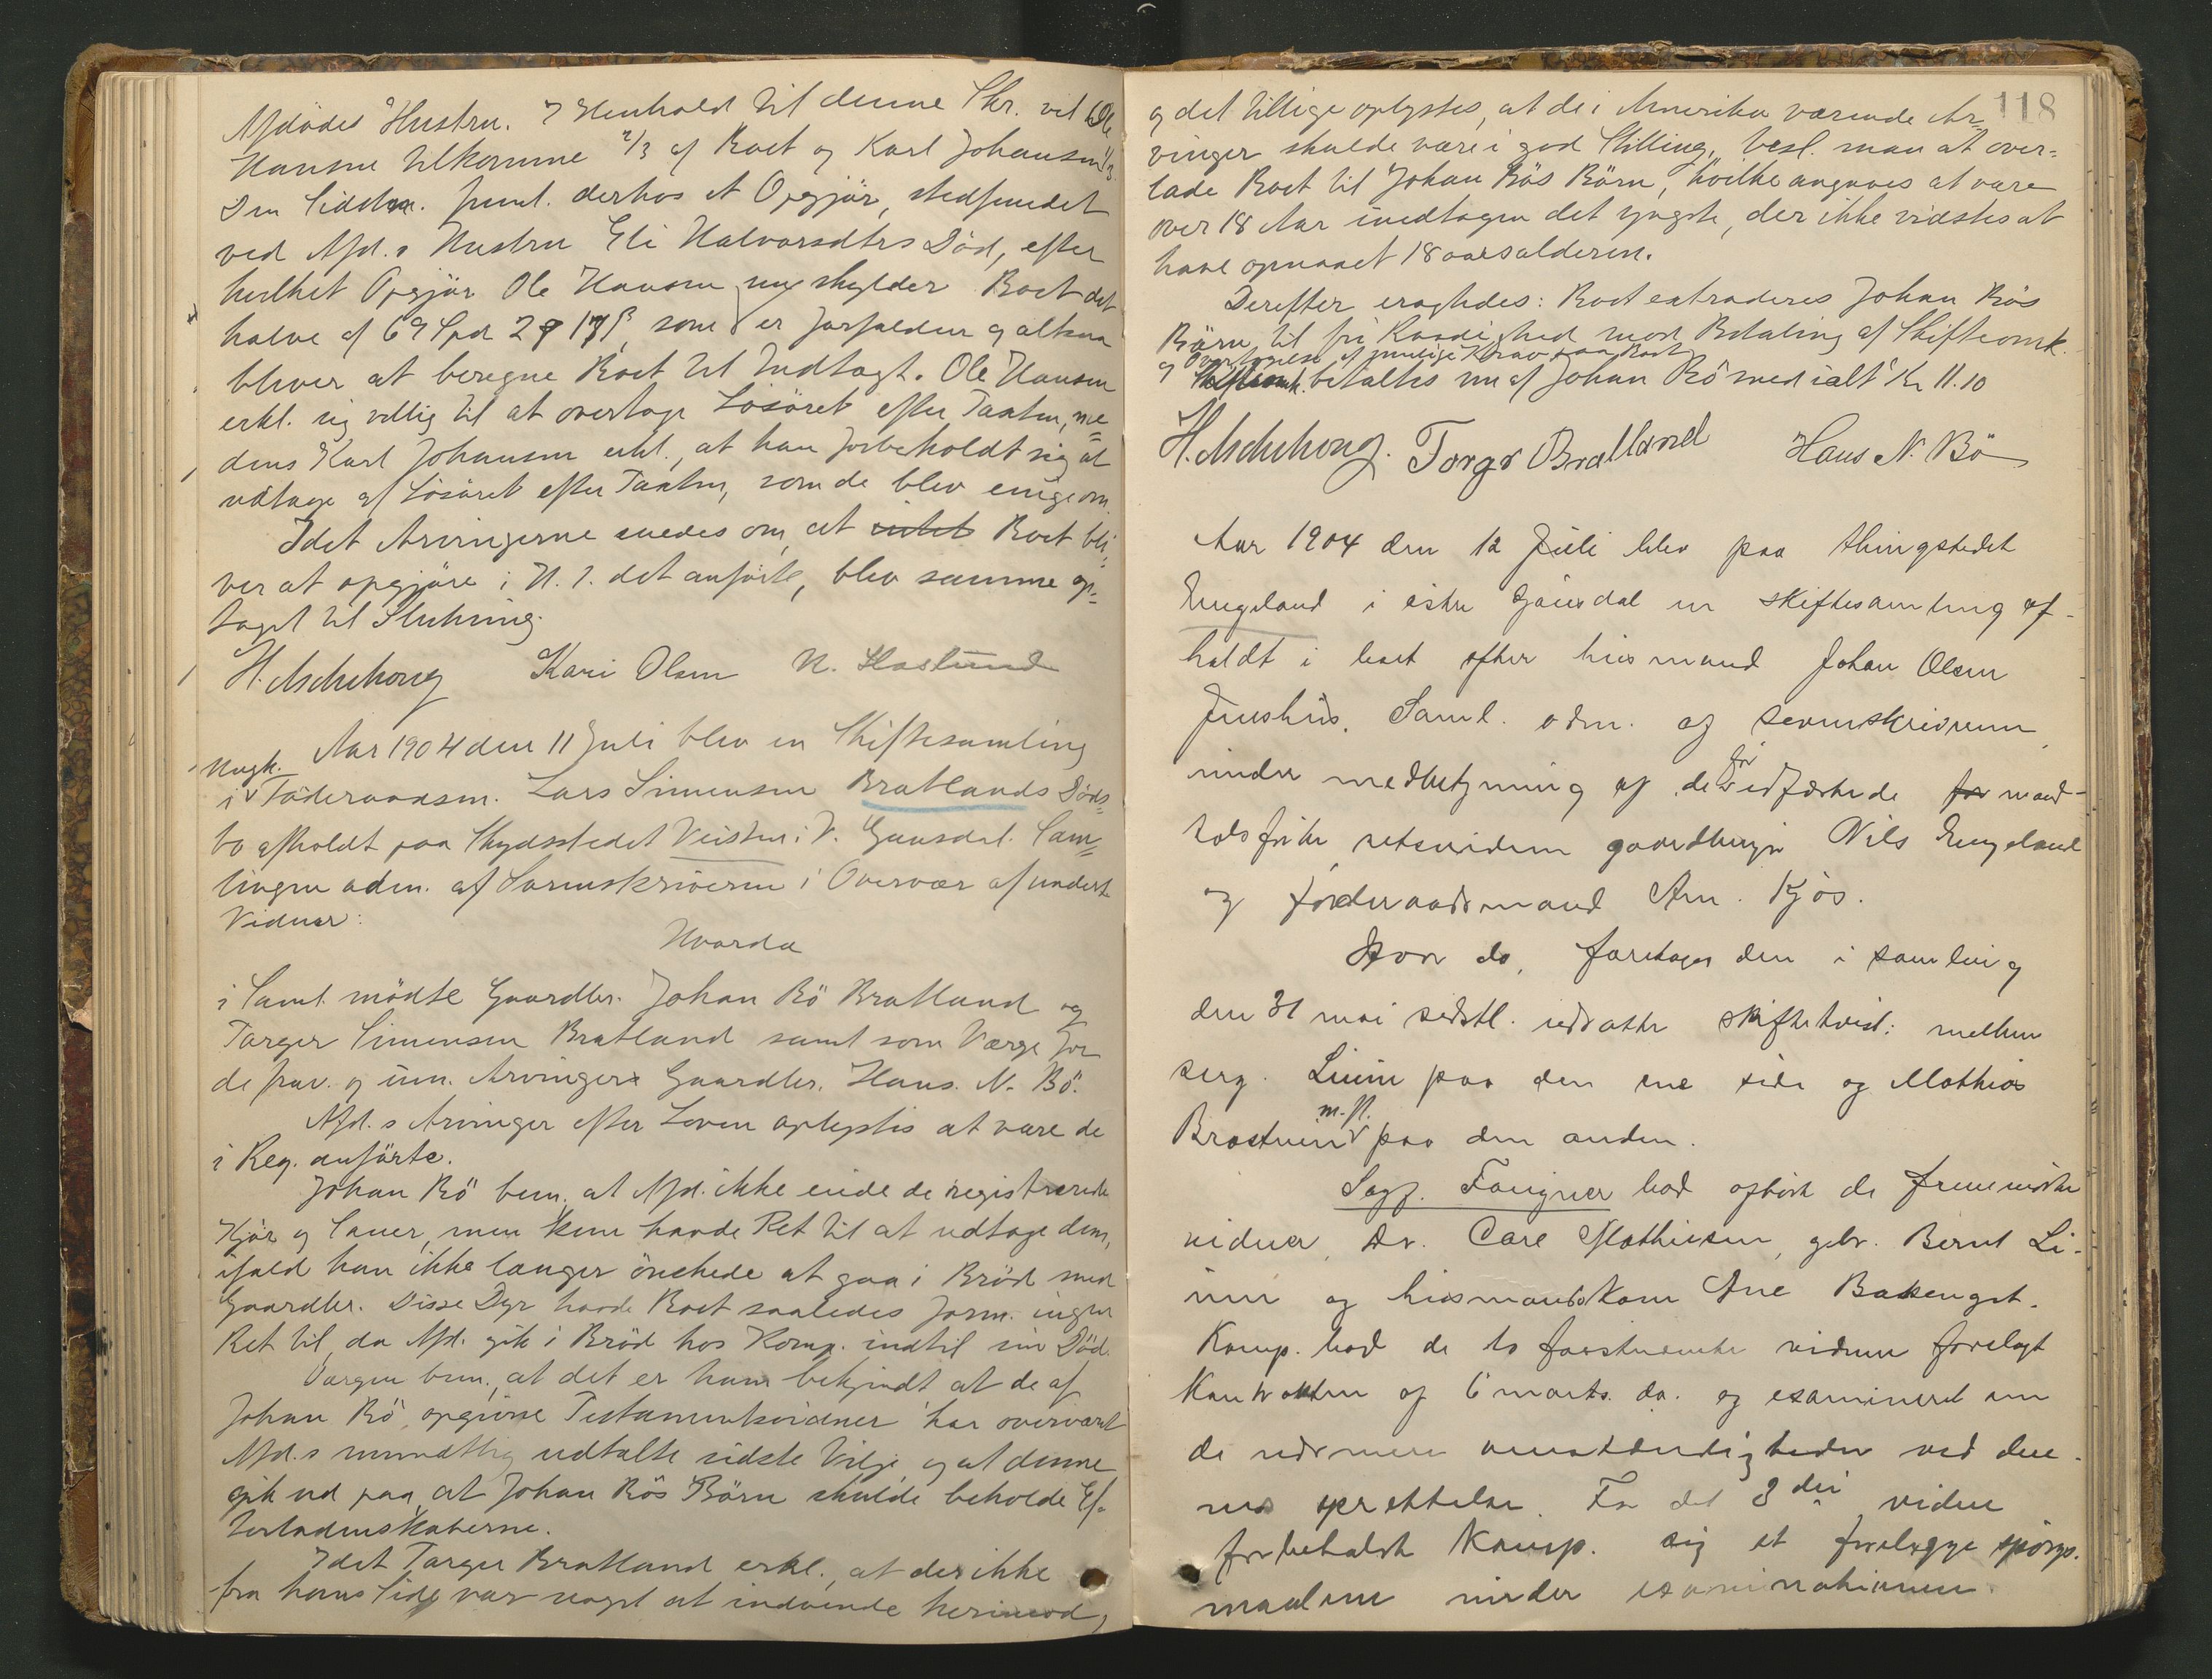 Afdødes Hustru. I Henhold til denne Skr. vil Ole
Hansen tilkomme 2/3 af Boet og Karl Johansen 1/3.
Den Sidstn. freml. derhos et Opgjør, stedfundet
ved Afd.s Hustru Eli Halvorsdtrs Død, efter
hvilket Opgjør Ole Hansen skylder Boet det
halve af 69 Spd 2 17 ß, som er forfalden og altsaa
bliver at beregne Boet til Indtægt. Ole Hansen
erkl. sig villig til at overtage Løsøret efter Taxten, me=
dens Karl Johansen erkl., at han forbeholdt sig at
udtage af Løsøret efter Taxten, som de blev enige om.
Idet Arvingerne enedes om, at Boet bli=
ver at opgjøre i H. t. det anførte, blev samme op=
taget til Slutning.
H. Aschehoug Kari Olsen N. Haslund
Aar 1904 den 11 Juli blev en Skiftesamling
Ungk.
i Føderaadsm. Lars Simensen Bratlands Døds=
bo afholdt paa Skydsstedet Veisten i V. Gausdal. Sam=
lingen adm. af Sorenskriveren i Overvær af undert.
Vidner:
Hvorda
i Saml. mødte Gaardbr. Johan Bø Bratland og
Torger Simensen Bratland samt som Værge for
de frav. og um. Arvinger Gaardbr. Hans. N. Bø.
Afd.s Arvinger efter Loven oplystes at være de
i Reg. anførte.
Johan Bø bem. at Afd. ikke eiede de registrerede
Kjør og Sauer, men kun havde Ret til at udtage dem,
ifald han ikke længer ønskede at gaa i Brød med
Gaardbr. Disse Dyr havde Boet saaledes form. ingen
Ret til, da Afd. gik i Brød hos Komp. indtil sin Død.
Værgen bem., at det er ham bekjendt at de af
Johan Bø opgivne Testamentsvidner har overværet
Afd.s mundtlig udtalte sidste Vilje og at denne
gik ud paa, at Johan Bøs Børn skulde beholde Ef=
terladenskaberne.
Idet Torger Bratland erkl., at der ikke
fra hans Side var noget at indvende herimod,
118
og det tillige oplystes, at de i Amerika værende Ar=
vinger skulde være i god Stilling, besl. man at over=
lade Boet til Johan Bøs Børn, hvilke angaves at være
over 18 Aar undtagen det yngste, der ikke vidstes at
have opnaaet 18 aarsalderen.
Derefter eragtedes: Boet extraderes Johan Bøs
Børn til fri Raadighed mod Betaling af Skifteomk.
og Overtagelse af mulige Krav paa Boet
Skifteomk. betaltes nu af Johan Bø med ialt Kr 11.10
H. Aschehoug. Torger Bratland Hans N. Bø
Aar 1904 den 12 Juli blev paa thingstedet
Engeland i østre Gausdal en skiftesamling af-
holdt i boet efter husmand Johan Olsen
Saml. adm. af sorenskriveren
under medbetjening af de for edfæstede mand-
talsførte retsvidner gaardbruger Nils Engeland
og føderaadsmand Arn. Kjøs.
Hvor da, foretages den i samling
den 31 mai sidstl. udsatte skiftetvist: mellem
serg. Linin paa den ene side og Mathias
m. fl.
Brostuen paa den anden.
Sagf. Fougner bad afhørt de fremmødte
vidner, Dr. Carl Mathiesen, gbr. Bernt Li-
og husmandskone Ane Bakenget.
Komp. bad de to førstnævnte vidner forelagt
Kontrakten af 6 marts. da. og examineret om
de nærmere omstændigheder ved den-
nes oprettelse. For det 3die vidne
forbeholdt Komp. sig at forelægge spørgs.
maalene under examinationen